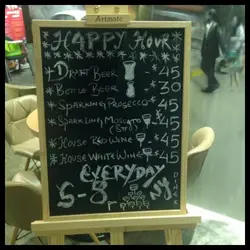 Artmate
HAPPY HOUR
DRAFT BEER - 45
BOTTLE BEER - 30
SPARKLING PROSECCO - 45
SPARKLING MOSCATO - 45
HOUSE RED WINE - 45
HOUSE WHITE WINE - 45
EVERYDAY
5-8